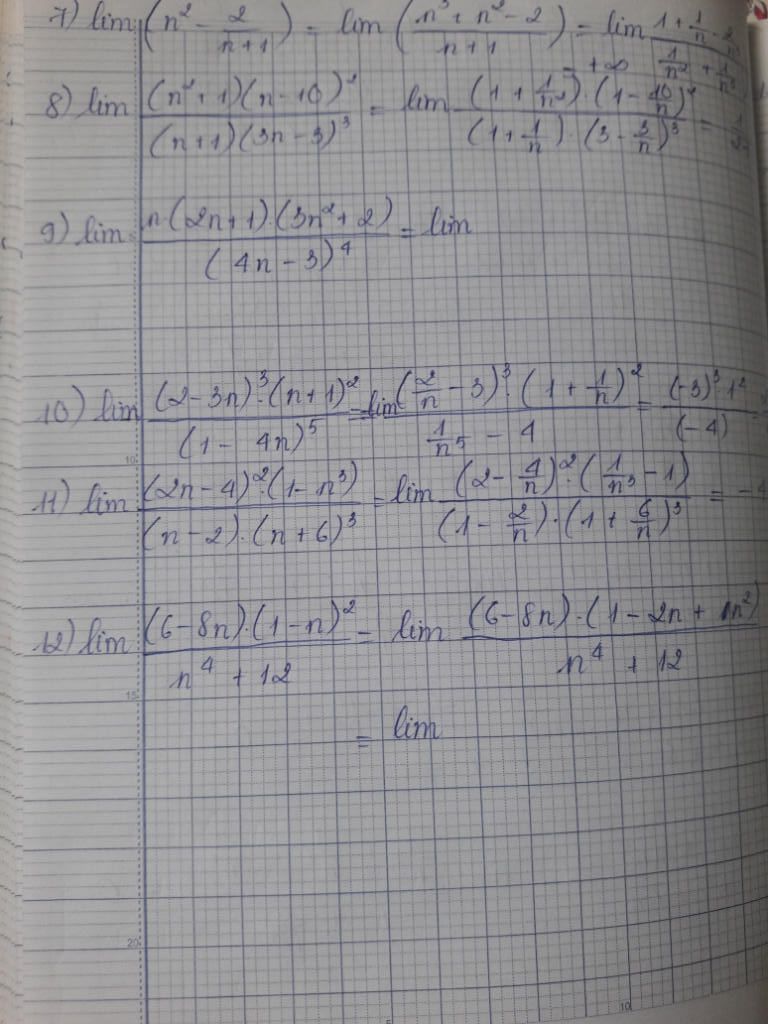 7) lim (n² - 2/(n+1)) = lim ((n³ + n² - 2)/(n+1)) = lim (1 + 1/n - 2/n³)/(1/n² + 1/n³)
= +∞
8) lim ((n²+1)(n-10)²)/((n+1)(3n-3)³) = lim ((1 + 1/n²)·(1 - 10/n)²)/((1 + 1/n)·(3 - 3/n)³) =
9) lim (n·(2n+1)·(3n²+2))/((4n-3)⁴) = lim
10) lim ((2-3n)³·(n+1)²)/((1-4n)⁵) = lim ((2/n - 3)³·(1 + 1/n)²)/(1/n⁵ - 4) = ((-3)³·1²)/((-4)) =
11) lim ((2n-4)²·(1-n³))/((n-2)·(n+6)³) = lim ((2 - 4/n)²·(1/n³ - 1))/((1 - 2/n)·(1 + 6/n)³) = -4
12) lim ((6-8n)·(1-n)²)/(n⁴+12) = lim ((6-8n)·(1-2n+1n²))/(n⁴+12)
= lim
10
15
20
5
10